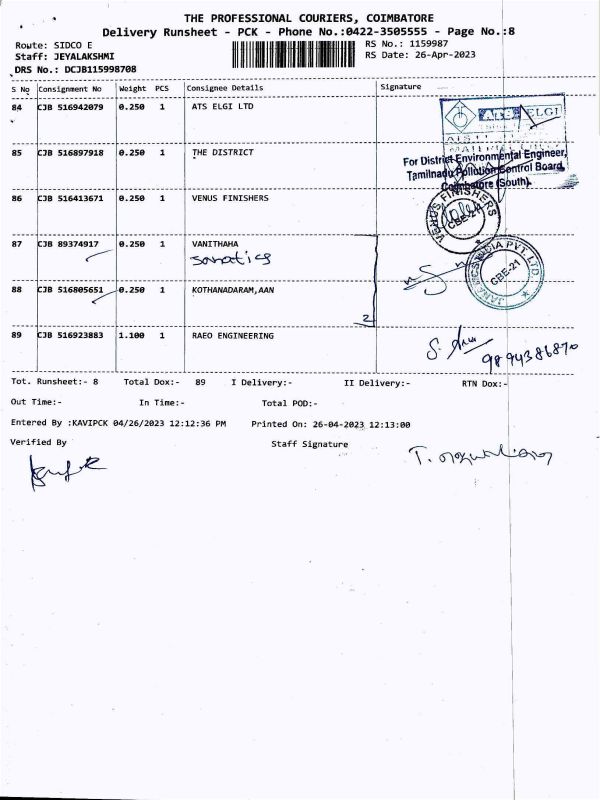 THE PROFESSIONAL COURIERS, COIMBATORE
Delivery Runsheet - PCK - Phone No.:0422-3505555 - Page No.:8
Route: SIDCO E
RS No.: 1159987
Staff: JEYALAKSHMI
RS Date: 26-Apr-2023
DRS No.: DCJB115998708
S No Consignment No Weight PCS Consignee Details Signature
84 CJB 516942079 0.250 1 ATS ELGI LTD
ATS ELGI
85 CJB 516897918 0.250 1 THE DISTRICT
For District Environmental Engineer,
Tamilnadu Pollution Control Board,
Coimbatore (South).
86 CJB 516413671 0.250 1 VENUS FINISHERS
VENUS FINISHERS
CBE-21
87 CJB 89374917 0.250 1 VANITHAHA
INDIA PVT. LTD.
CBE-21
88 CJB 516805651 0.250 1 KOTHANADARAM,AAN
2
89 CJB 516923883 1.100 1 RAEO ENGINEERING
9894386870
Tot. Runsheet:- 8 Total Dox:- 89 I Delivery:- II Delivery:- RTN Dox:-
Out Time:- In Time:- Total POD:-
Entered By :KAVIPCK 04/26/2023 12:12:36 PM Printed On: 26-04-2023 12:13:00
Verified By Staff Signature